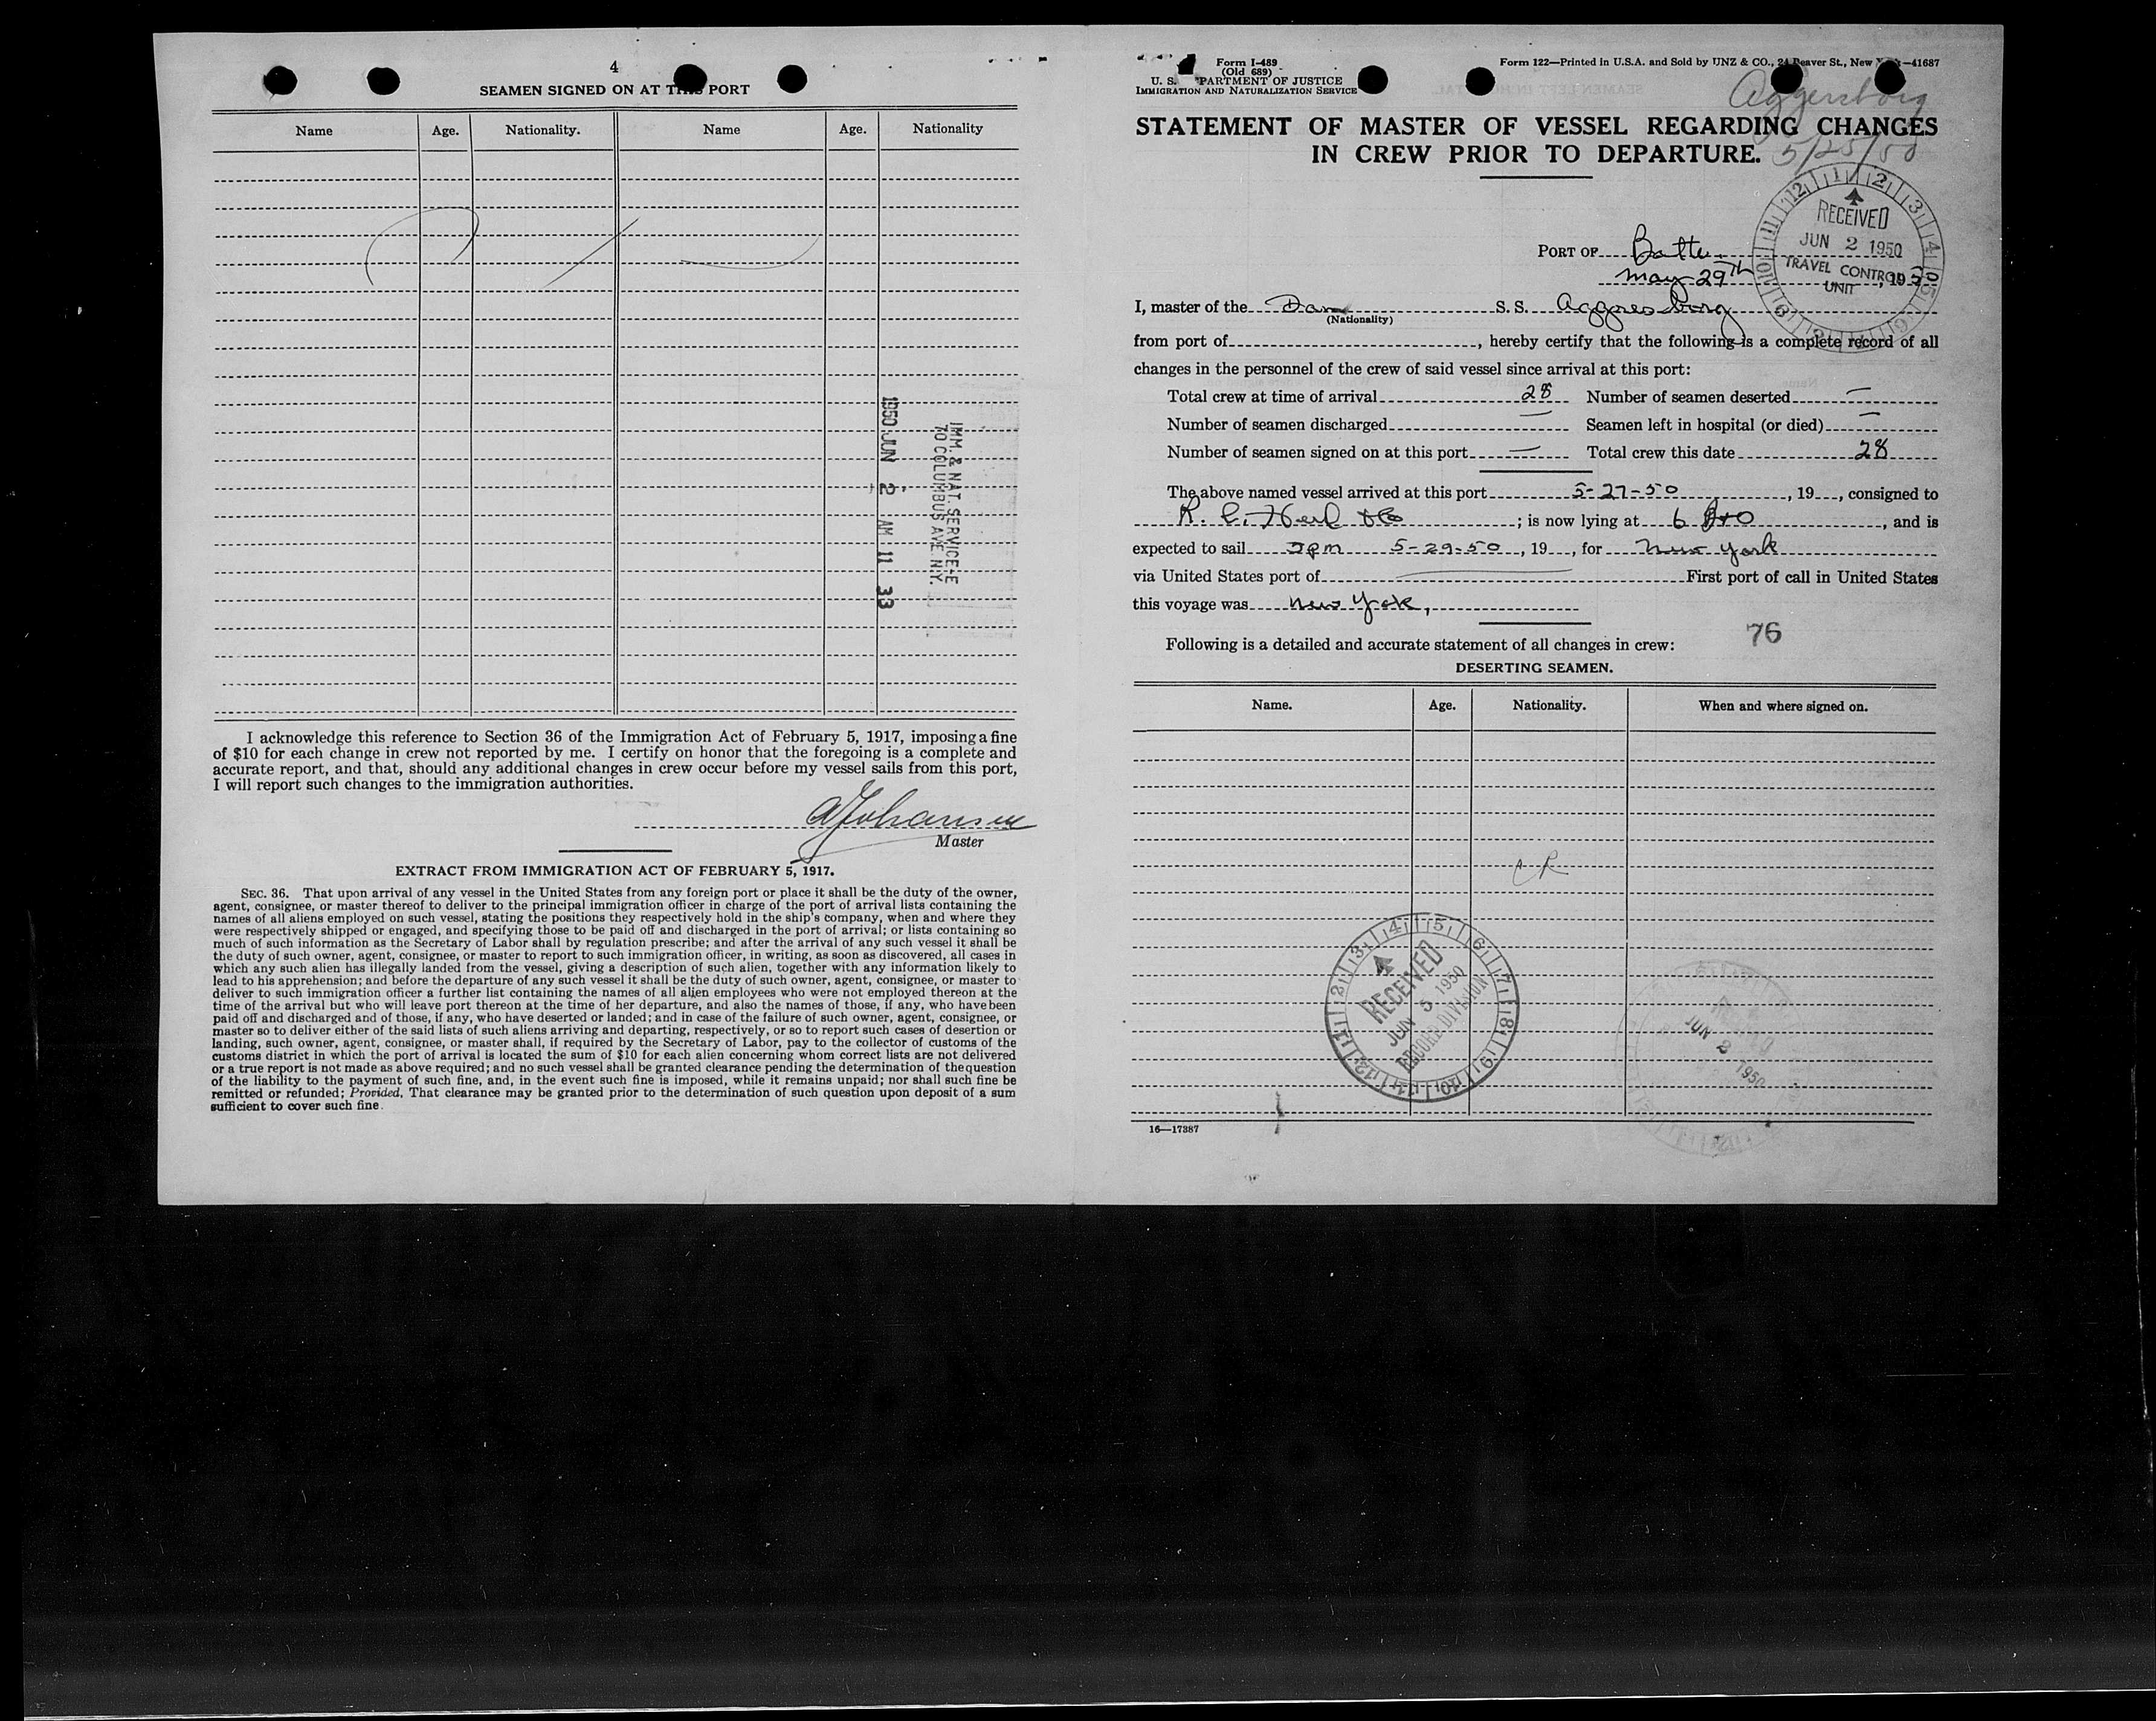 4
SEAMEN SIGNED ON AT THIS PORT
Name Age. Nationality. Name Age. Nationality
IMM. & NAT. SERVICE-E
70 COLUMBUS AVE N.Y.
1950 JUN 2 AM 11 33
I acknowledge this reference to Section 36 of the Immigration Act of February 5, 1917, imposing a fine
of $10 for each change in crew not reported by me. I certify on honor that the foregoing is a complete and
accurate report, and that, should any additional changes in crew occur before my vessel sails from this port,
I will report such changes to the immigration authorities.
AJohansen
Master
EXTRACT FROM IMMIGRATION ACT OF FEBRUARY 5, 1917.
SEC. 36. That upon arrival of any vessel in the United States from any foreign port or place it shall be the duty of the owner,
agent, consignee, or master thereof to deliver to the principal immigration officer in charge of the port of arrival lists containing the
names of all aliens employed on such vessel, stating the positions they respectively hold in the ship's company, when and where they
were respectively shipped or engaged, and specifying those to be paid off and discharged in the port of arrival; or lists containing so
much of such information as the Secretary of Labor shall by regulation prescribe; and after the arrival of any such vessel it shall be
the duty of such owner, agent, consignee, or master to report to such immigration officer, in writing, as soon as discovered, all cases in
which any such alien has illegally landed from the vessel, giving a description of such alien, together with any information likely to
lead to his apprehension; and before the departure of any such vessel it shall be the duty of such owner, agent, consignee, or master to
deliver to such immigration officer a further list containing the names of all alien employees who were not employed thereon at the
time of the arrival but who will leave port thereon at the time of her departure, and also the names of those, if any, who have been
paid off and discharged and of those, if any, who have deserted or landed; and in case of the failure of such owner, agent, consignee, or
master so to deliver either of the said lists of such aliens arriving and departing, respectively, or so to report such cases of desertion or
landing, such owner, agent, consignee, or master shall, if required by the Secretary of Labor, pay to the collector of customs of the
customs district in which the port of arrival is located the sum of $10 for each alien concerning whom correct lists are not delivered
or a true report is not made as above required; and no such vessel shall be granted clearance pending the determination of the question
of the liability to the payment of such fine, and, in the event such fine is imposed, while it remains unpaid; nor shall such fine be
remitted or refunded; Provided, That clearance may be granted prior to the determination of such question upon deposit of a sum
sufficient to cover such fine.
Form I-489
(Old 689)
U. S. DEPARTMENT OF JUSTICE
IMMIGRATION AND NATURALIZATION SERVICE
Form 122—Printed in U.S.A. and Sold by UNZ & CO., 24 Beaver St., New York—41687
Aggersborg
5/25/50
STATEMENT OF MASTER OF VESSEL REGARDING CHANGES
IN CREW PRIOR TO DEPARTURE.
RECEIVED
JUN 2 1950
TRAVEL CONTROL
UNIT
PORT OF
May 29th, 195
I, master of the Dan S. S. Aggresborg
(Nationality)
from port of , hereby certify that the following is a complete record of all
changes in the personnel of the crew of said vessel since arrival at this port:
Total crew at time of arrival 28 Number of seamen deserted —
Number of seamen discharged — Seamen left in hospital (or died) —
Number of seamen signed on at this port — Total crew this date 28
The above named vessel arrived at this port 5-27-50, 19 , consigned to
R. C. ; is now lying at 6 B+O , and is
expected to sail 5-29-50, 19 , for New York
via United States port of First port of call in United States
this voyage was New York,
76
Following is a detailed and accurate statement of all changes in crew:
DESERTING SEAMEN.
Name. Age. Nationality. When and where signed on.
CR
RECEIVED
JUN 5 1950
RECORD DIVISION
JUN 2 1950
16—17387